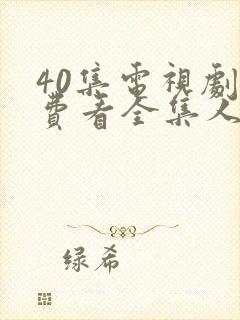 40集電視劇
費看全集人
绿希